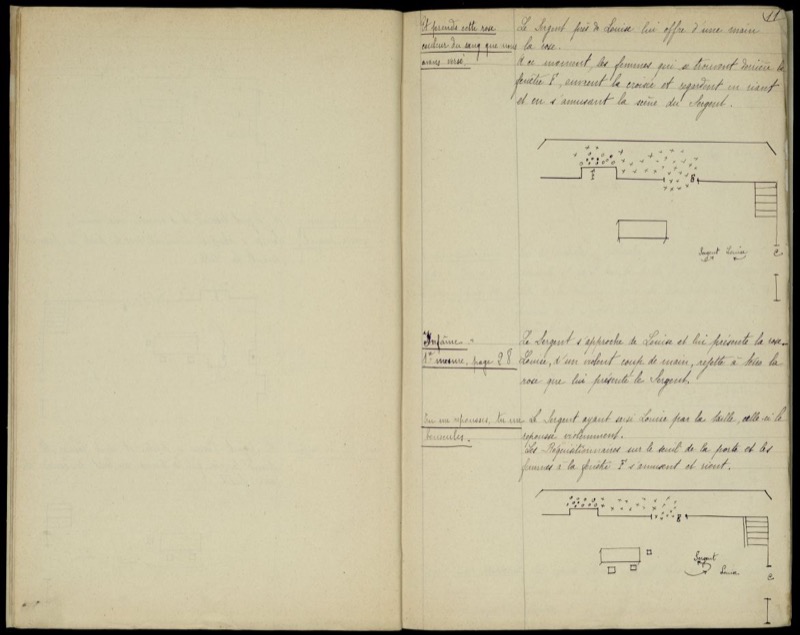 11
Et prends cette rose
couleur du sang que nous
avons versé.
Le Sergent près de Louise lui offre d'une main
la rose.
A ce moment, les femmes qui se trouvent derrière la
fenêtre F, ouvrent la croisée et regardent en riant
et en s'amusant la scène du Sergent.
F
B
Sergent Louise
C
"Infâme"
1re mesure, page 28
Le Sergent s'approche de Louise et lui présente la rose.
Louise, d'un violent coup de main, rejette à terre la
rose que lui présente le Sergent.
Tu me repousses, tu me
bouscules.
Le Sergent ayant saisi Louise par la taille, celle-ci le
repousse violemment.
Les Réquisitionnaires sur le seuil de la porte et les
femmes à la fenêtre F s'amusent et rient.
B
Sergent
Louise
C